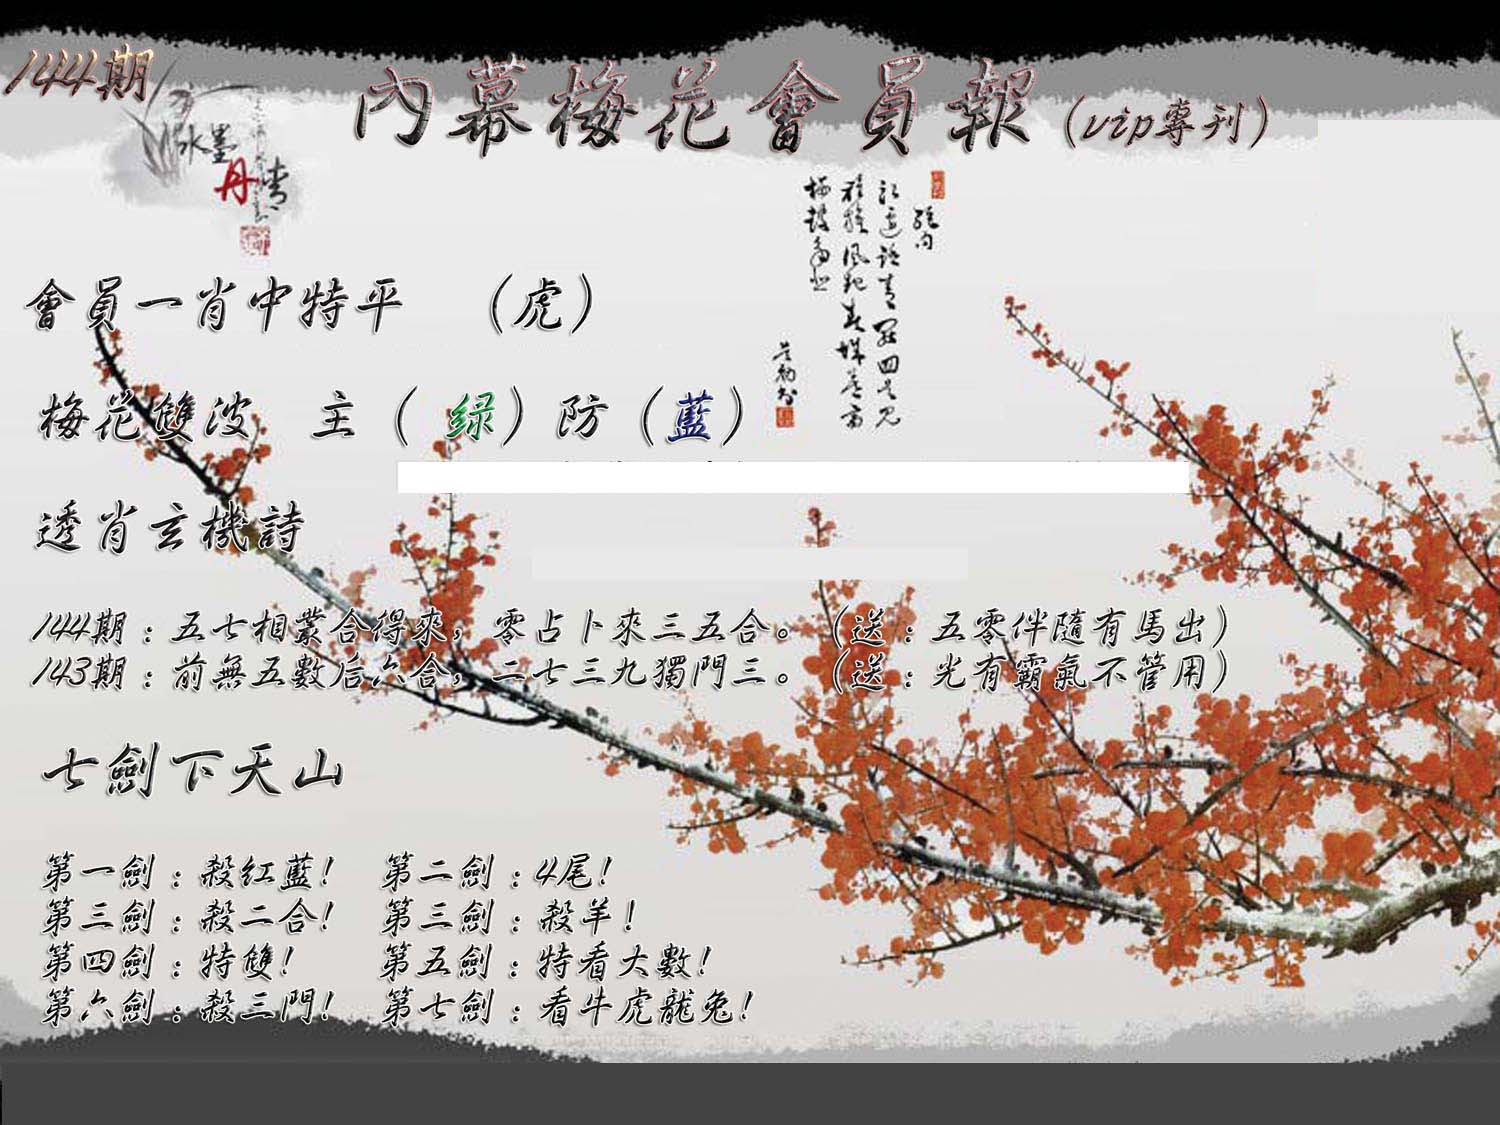 144期
內幕梅花會員報(vip專刊)
水墨
丹青
會員一肖中特平 (虎)
梅花雙波 主(綠)防(藍)
透肖玄機詩
144期:五七相叢合得來,零占卜來三五合。(送:五零伴隨有馬出)
143期:前無五數后六合,二七三九獨門三。(送:光有霸氣不管用)
七劍下天山
第一劍:殺紅藍! 第二劍:4尾!
第三劍:殺二合! 第三劍:殺羊!
第四劍:特雙! 第五劍:特看大數!
第六劍:殺三門! 第七劍:看牛虎龍兔!